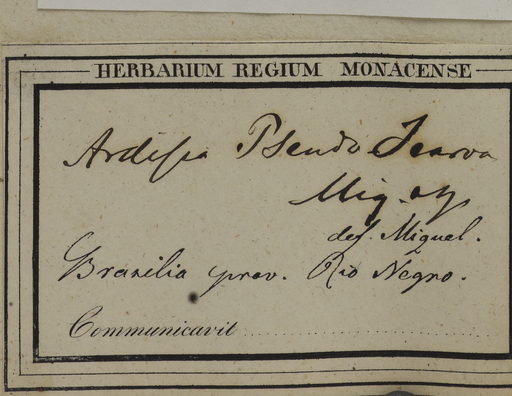 HERBARIUM REGIUM MONACENSE
Ardisia Pseudo Icacora
Miq.
det. Miquel.
Brasilia prov. Rio Negro.
Communicavit